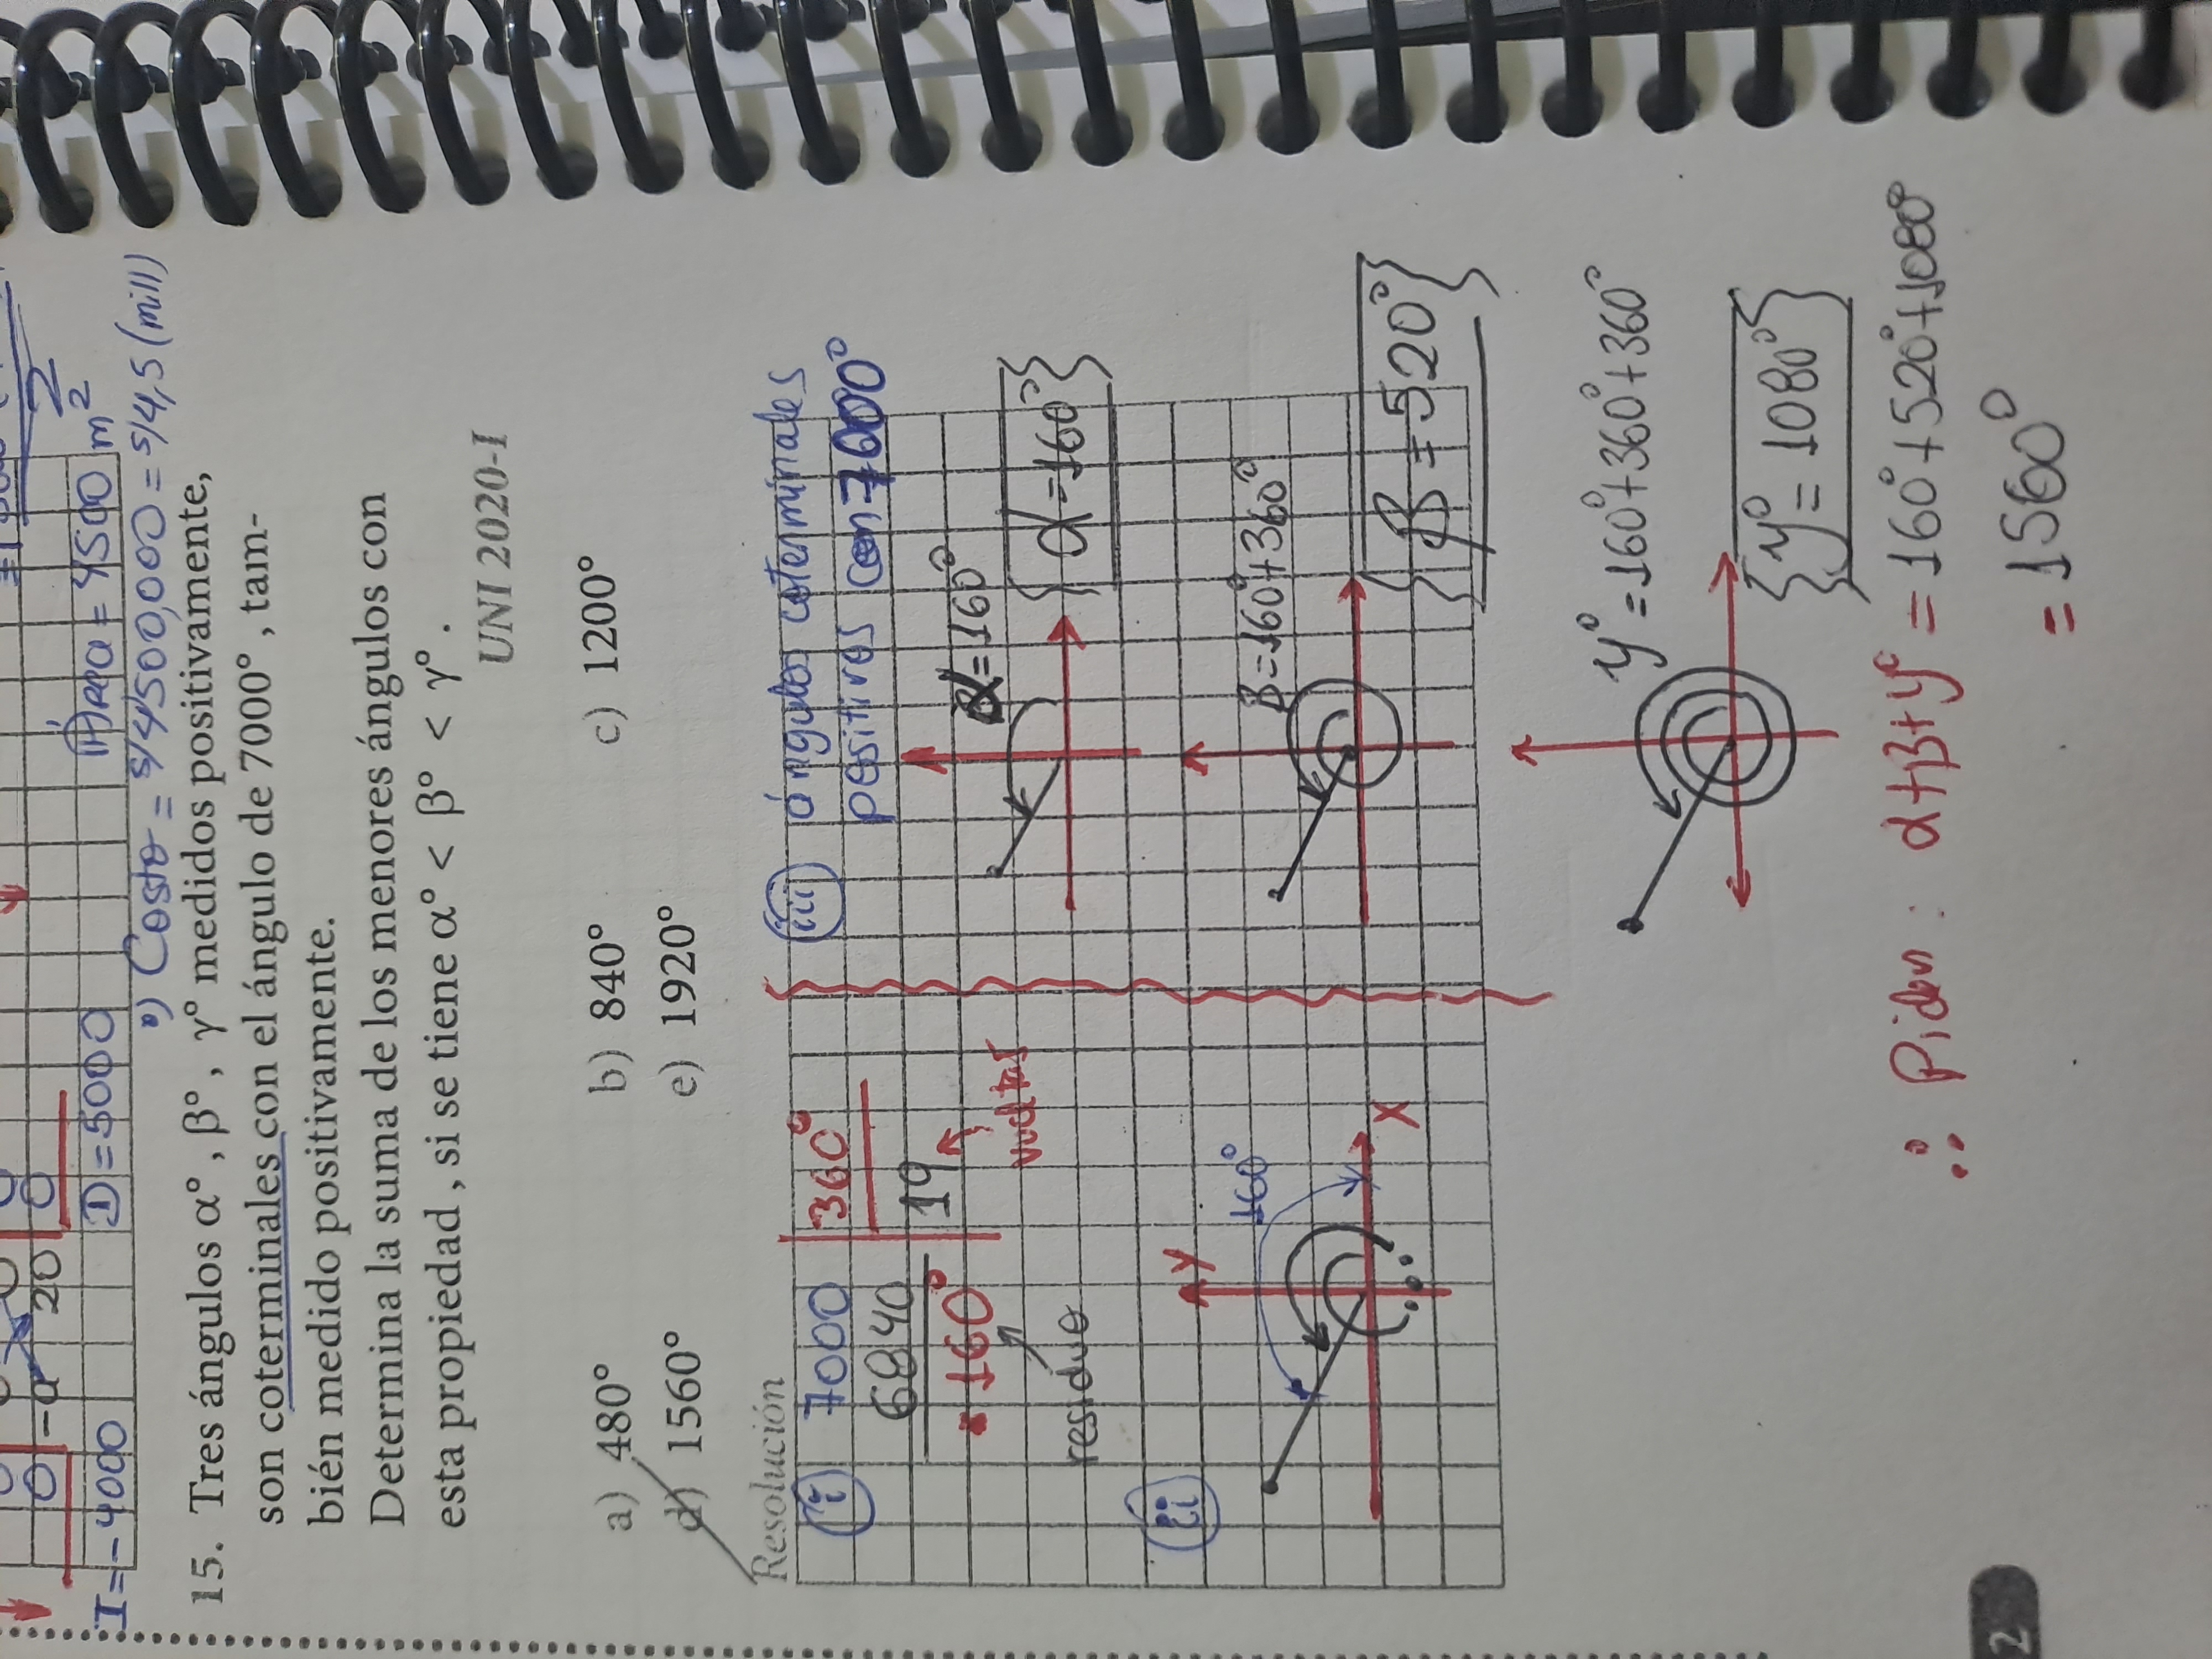 0 -a 20 0
2
I = -4000 D = 5000 Área = 4500 m²
Costo = s/4500,000 = s/4,5 (mill)
15. Tres ángulos α° , β° , γ° medidos positivamente,
son coterminales con el ángulo de 7000° , tam-
bién medido positivamente.
Determina la suma de los menores ángulos con
esta propiedad , si se tiene α° < β° < γ° .
UNI 2020-I
a) 480° b) 840° c) 1200°
d) 1560° e) 1920°
Resolución
i 7000 360°
6840 19
160° vueltas
residuo
ii
Y
160°
X
iii ángulos coterminales
positivos con 7000°
α = 160°
α = 160°
β = 160° + 360°
β = 520°
y° = 160° + 360° + 360°
y° = 1080°
∴ Piden : α + β + y° = 160° + 520° + 1080°
= 1560°
2